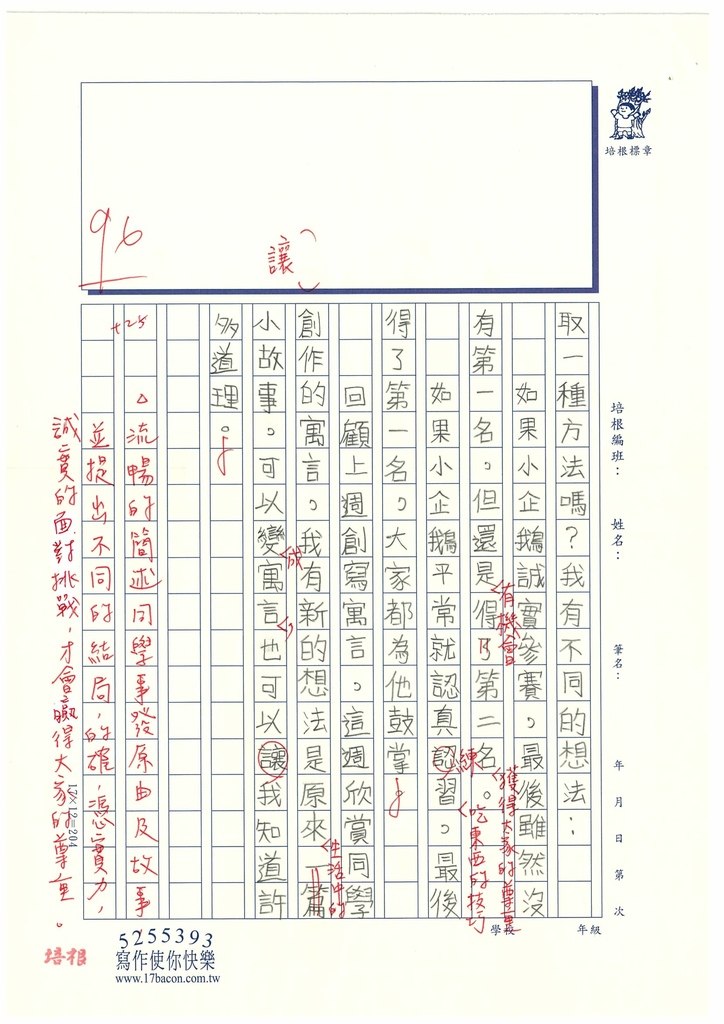 培根標章
96
讓
培根編班：
姓名：
筆名：
年 月 日 第 次
學校 年級
取一種方法嗎？我有不同的想法：
如果小企鵝誠實參賽。最後雖然沒
有第一名。但還是得了第二名。
有機會
獲得大家的尊重
如果小企鵝平常就認真認習。最後
練
吃東西的技巧
得了第一名。大家都為他鼓掌
回顧上週創寫寓言。這週欣賞同學
創作的寓言。我有新的想法是原來一篇
生活中的
小故事。可以變寓言也可以讓我知道許
成
多道理。
+25
△流暢的簡述同學事發原由及故事
並提出不同的結局，的確，憑實力，
誠實的面對挑戰，才會贏得大家的尊重。
17×12=204
培根
5255393
寫作使你快樂
www.17bacon.com.tw